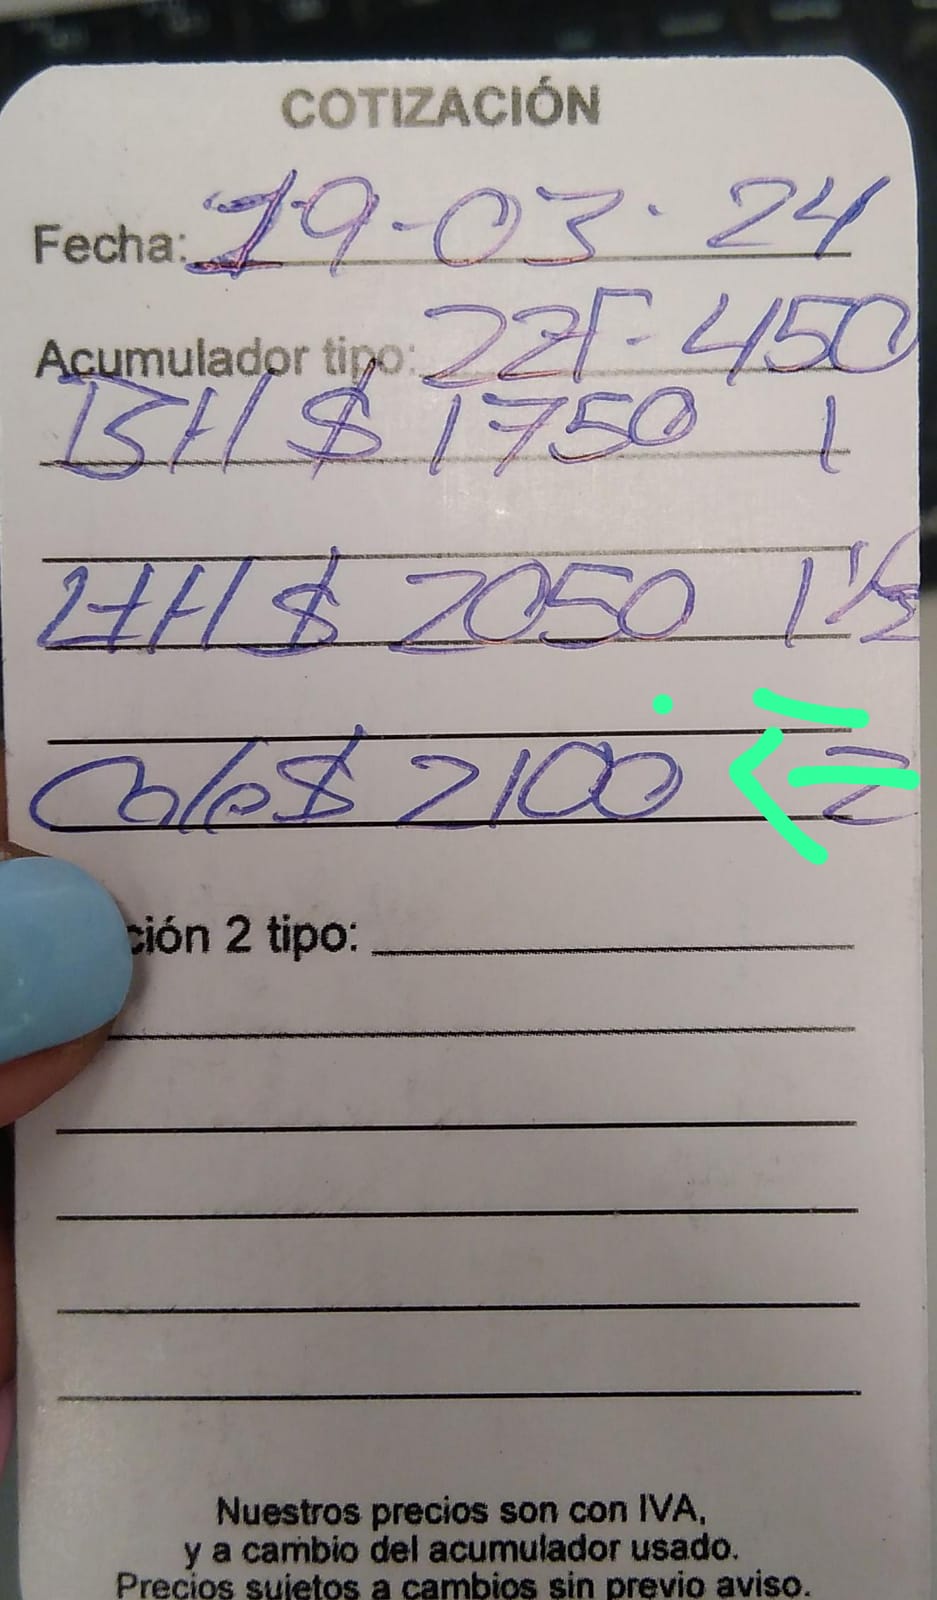 COTIZACIÓN
Fecha: 19-03-24
Acumulador tipo: 22F-450
BH $ 1750 1
LTH $ 2050 1 1/2
$ 2100 2
ción 2 tipo:
Nuestros precios son con IVA,
y a cambio del acumulador usado.
Precios sujetos a cambios sin previo aviso.